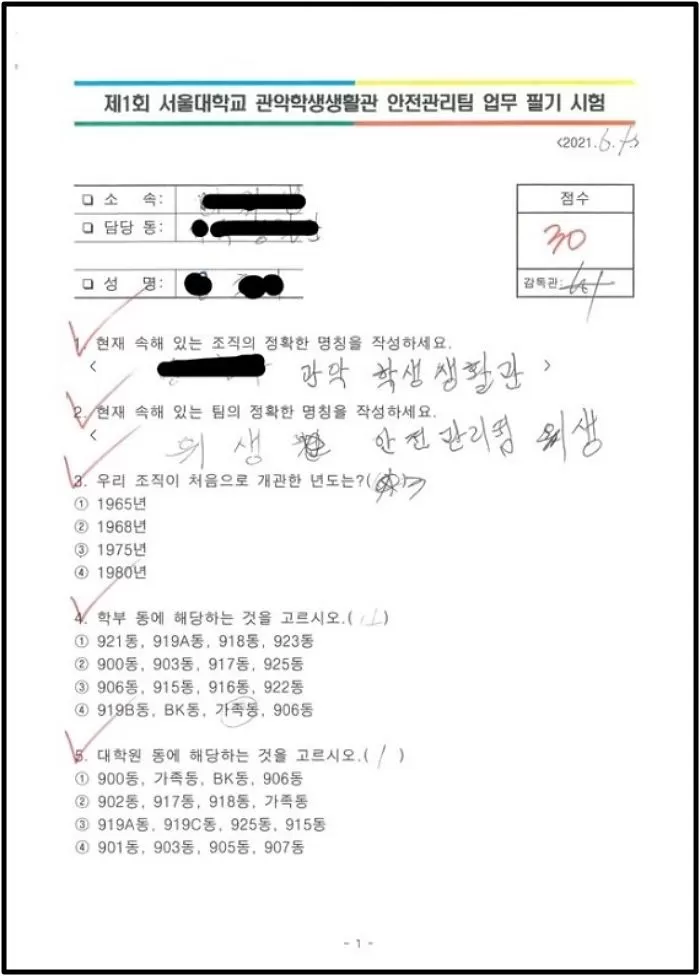 제1회 서울대학교 관악학생생활관 안전관리팀 업무 필기 시험
<2021.6.
❏ 소 속:
❏ 담당 동:
❏ 성 명:
점수
30
감독관:
1. 현재 속해 있는 조직의 정확한 명칭을 작성하세요.
< 관악 학생생활관 >
2. 현재 속해 있는 팀의 정확한 명칭을 작성하세요.
< 위생 안전관리팀 위생
3. 우리 조직이 처음으로 개관한 년도는?( )
① 1965년
② 1968년
③ 1975년
④ 1980년
4. 학부 동에 해당하는 것을 고르시오.( )
① 921동, 919A동, 918동, 923동
② 900동, 903동, 917동, 925동
③ 906동, 915동, 916동, 922동
④ 919B동, BK동, 가족동, 906동
5. 대학원 동에 해당하는 것을 고르시오.( / )
① 900동, 가족동, BK동, 906동
② 902동, 917동, 918동, 가족동
③ 919A동, 919C동, 925동, 915동
④ 901동, 903동, 905동, 907동
- 1 -